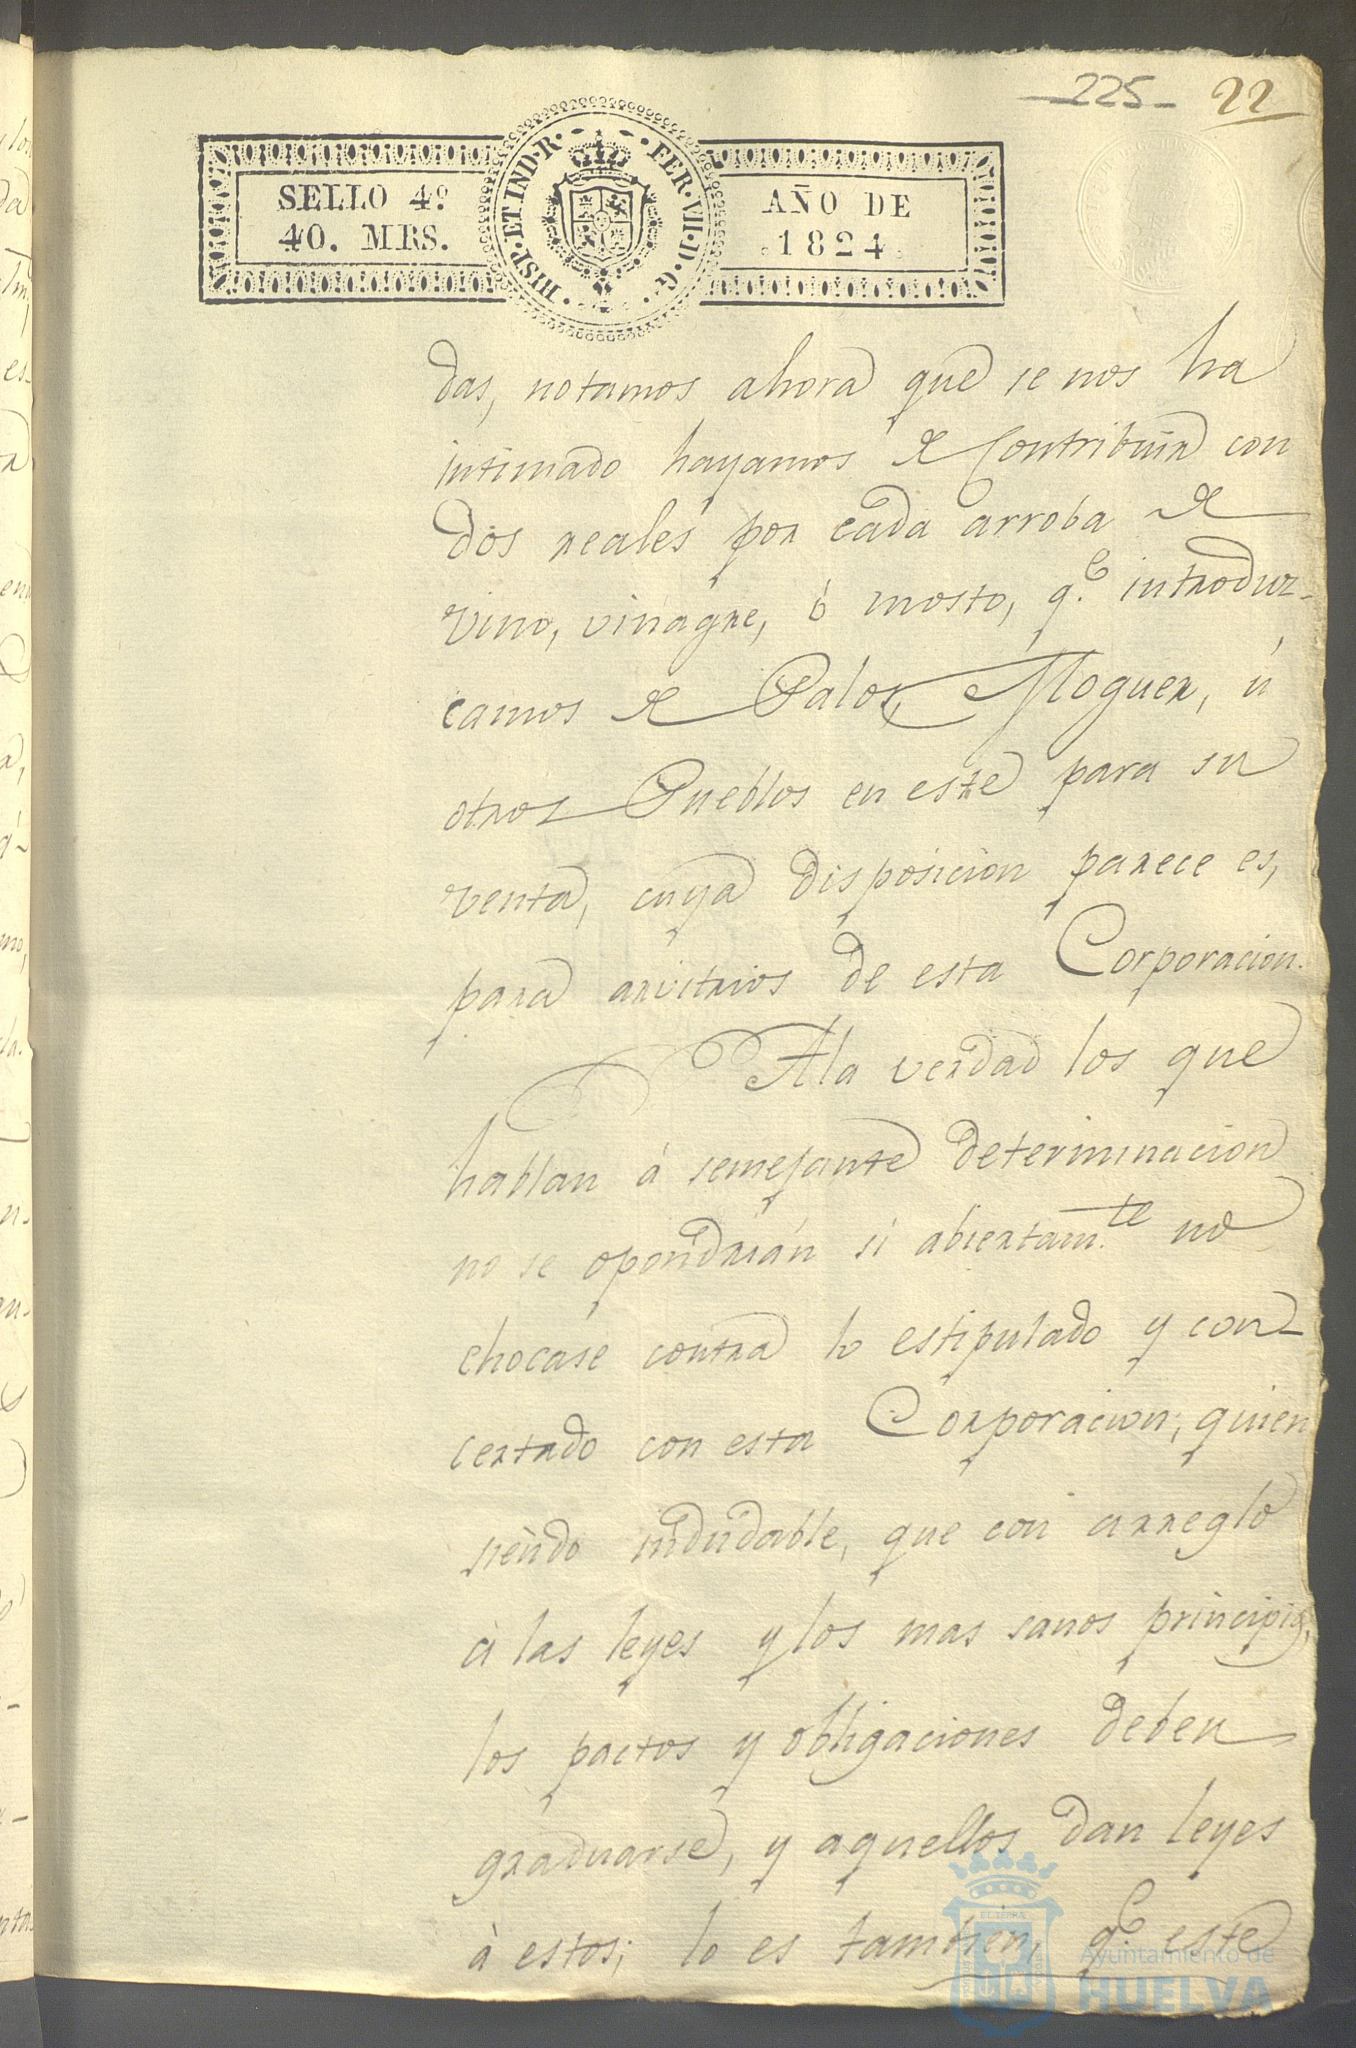 225 22
SELLO 4º
40. MRS.
HISP. ET IND. R. FER. VII. D. G.
AÑO DE
1824
das, notamos ahora que se nos ha
intimado hayamos de Contribuir con
dos reales por cada arroba de
vino, vinagre, ò mosto, q.e introduz-
camos de Palos, Moguer, ú
otros Pueblos en este para su
venta, cuya disposicion parece es,
para arvitrios de esta Corporacion.
A la verdad los que
hablan á semejante determinacion
no se opondrían si abiertam.te no
chocase contra lo estipulado y con-
certado con esta Corporacion, quien
siendo indudable, que con arreglo
à las leyes y los mas sanos principios,
los pactos y obligaciones deben
graduarse, y aquellos dan leyes
à estos; lo es tambien, q.e este
Ayuntamiento de
HUELVA